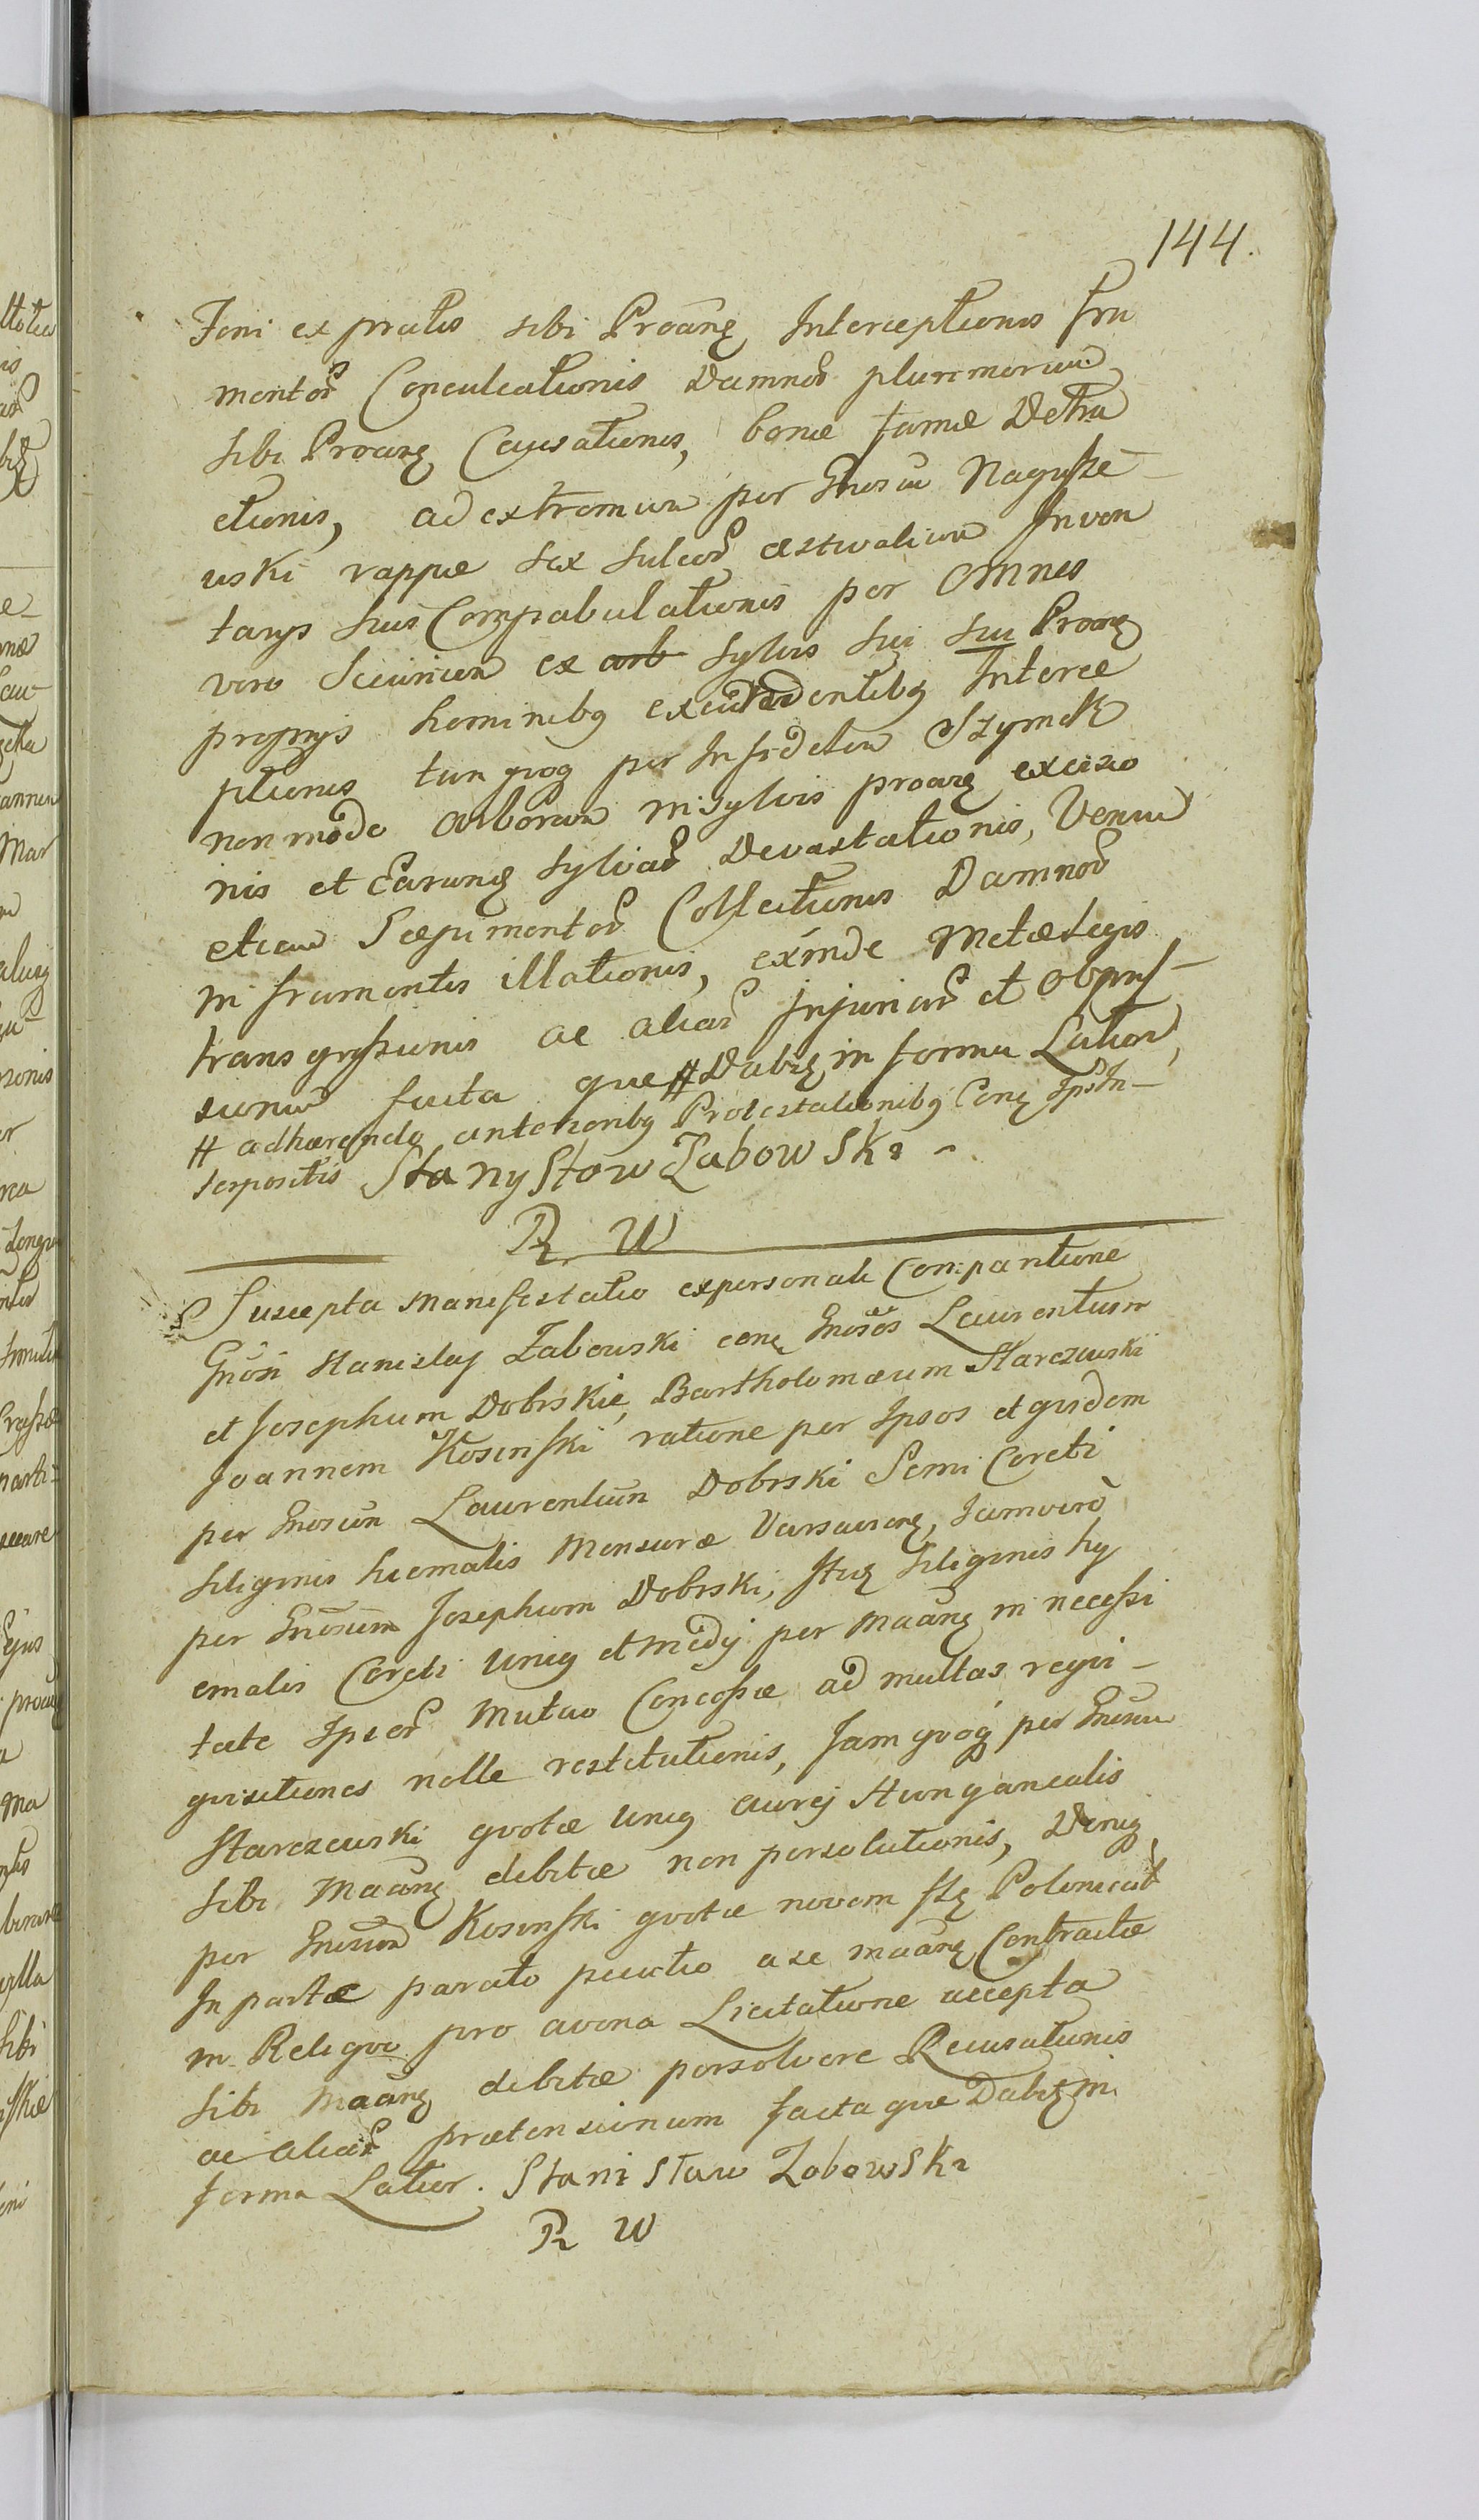 144.
Foni ex pratis sibi Proãng Interceptionis fru
mentor Conculcationis Damnor plurimorum
sibi Proang Causationis, bonæ famæ Detra
ctionis, ad extremum per Gnosum Nagusze-
uski rappæ sex sulcor æstivalium Inven
tarys suis Compabulationis per Omnes
vero Securium ex arb sylvis sui sui Proang
proprys hominibg excidentibg Interce
ptionis tum quog per Infidelem Szymek
non modo Arborum in sylvis proang excisio
nis et Earung sylvar Devastationis, Verum
etiam Sæpimentor Collectionis Damnor
in frumentis illationis, exinde Metæ Legis
transgressionis ac aliar Injuriar et Oppres-
sionum facta quæ # Dabit in forma Latior,
# adhærendo anterioribg Protestationibg Conq Ipsos In-
terpositis Stanysław Zabowski -
R W
Suscepta Manifestatio ex personali Comparitione
Gnosi Stanislaj Zabouski conq Gnosos Laurentium
et Josephum Dobrskie, Bartholomæum Starczeuski
Joannem Kosinski ratione per Ipsos et quidem
per Gnosum Laurentium Dobrski Semi Coreti
siliginis hiemalis Mensuræ Varsavieng, Jam vero
per Gnosum Josephum Dobrski, Itig siliginis hy
emalis Coreti Unig et medij per Maang in necessi
tate Ipsor Mutuo Concessæ ad multas requi-
sitiones nolle restitutionis, Jam quog per Gnosum
Starczeuski quotæ Unig Aurej Hungaricalis
sibi Maang debitæ non persolutionis, Deniq
per Gnosum Kosinski quotæ novem flg Polonicat
In parte parato pecunio a se maang Contractæ
in Reliquo pro avena Licitatione accepta
sibi Maang debitæ persolvere Recusationis
ac aliar prætensionum facta quæ Dabit in
forma Latior. Stanisław Zabowski
R W